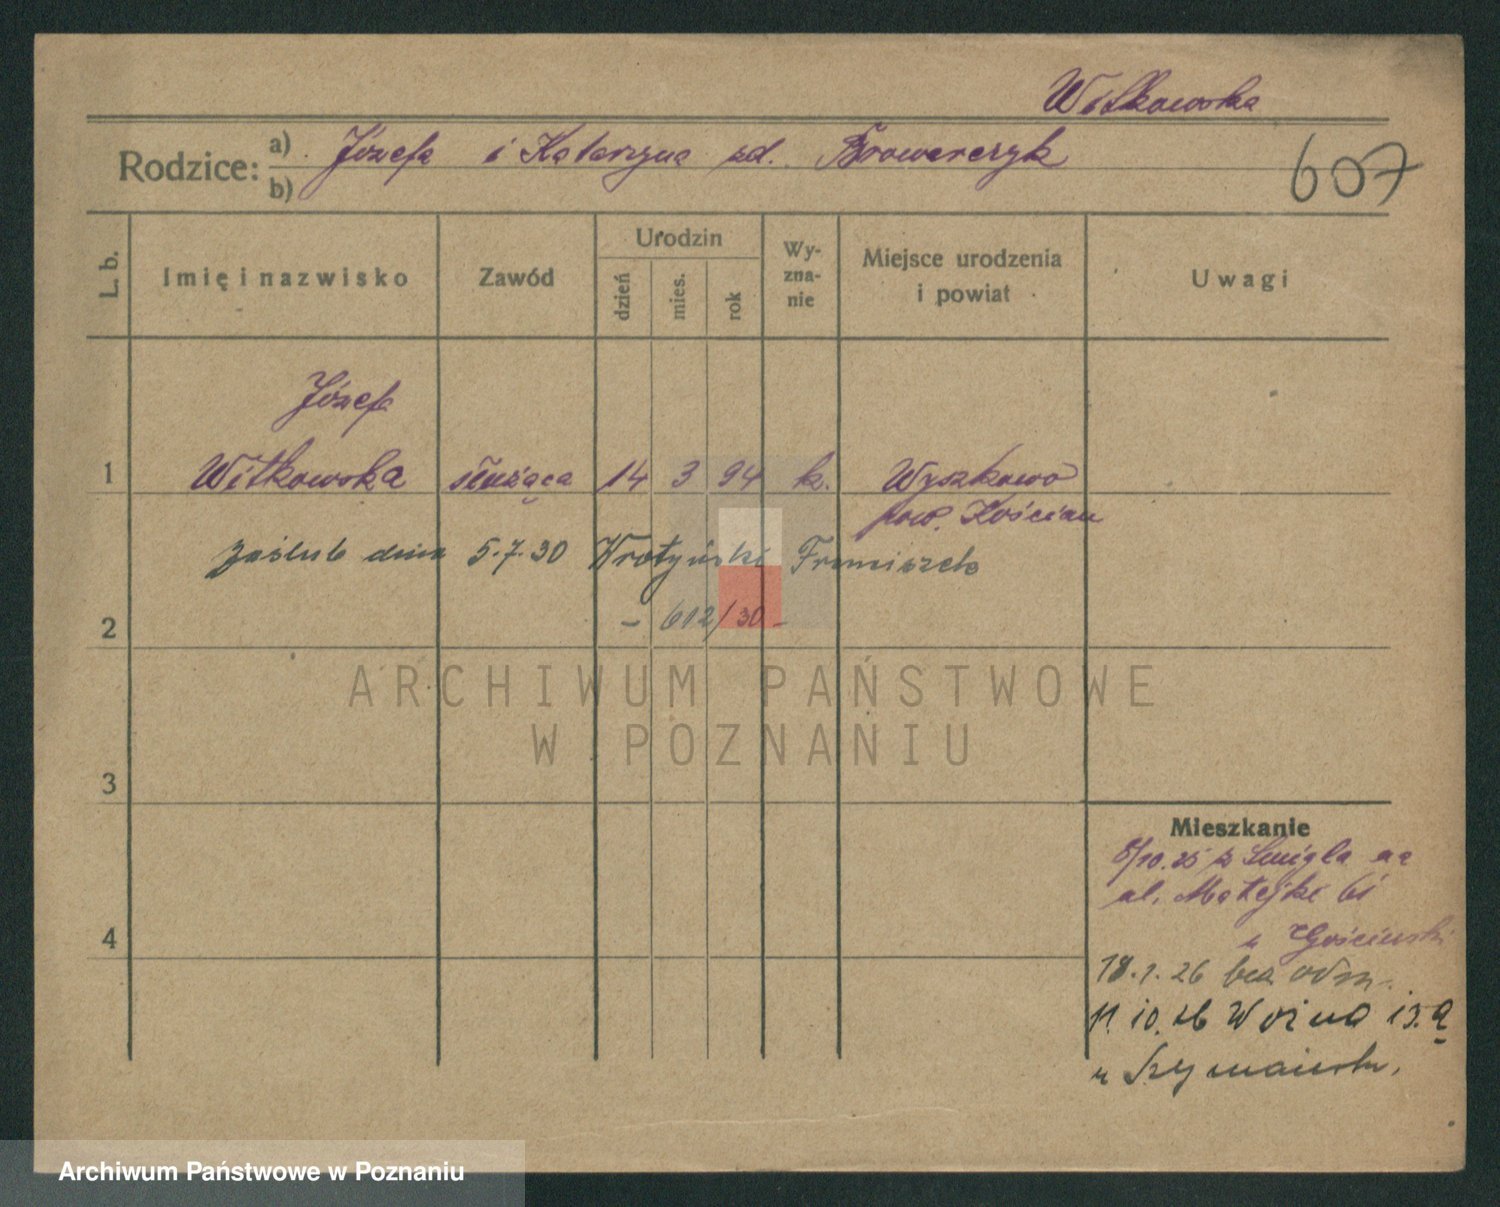 Witkowska
Rodzice: a) Józefa i Katarzyna zd. Browarczyk
b)
607
L. b. Imię i nazwisko Zawód Urodzin dzień mies. rok Wy-zna-nie Miejsce urodzenia i powiat Uwagi
Józefa
1 Witkowska służąca 14 3 94 k. Wyszkowo
pow. Kościan
zaślub dnia 5.7.30 Wrotyński Franciszek
2 – 612/30 –
3
Mieszkanie
8/10.25 z Śmigla na
ul. Matejki 61
4 u Gościński
18.1.26 bez odm.
11.10.26 Woźna 13.a
u Szymański
ARCHIWUM PAŃSTWOWE
W POZNANIU
Archiwum Państwowe w Poznaniu